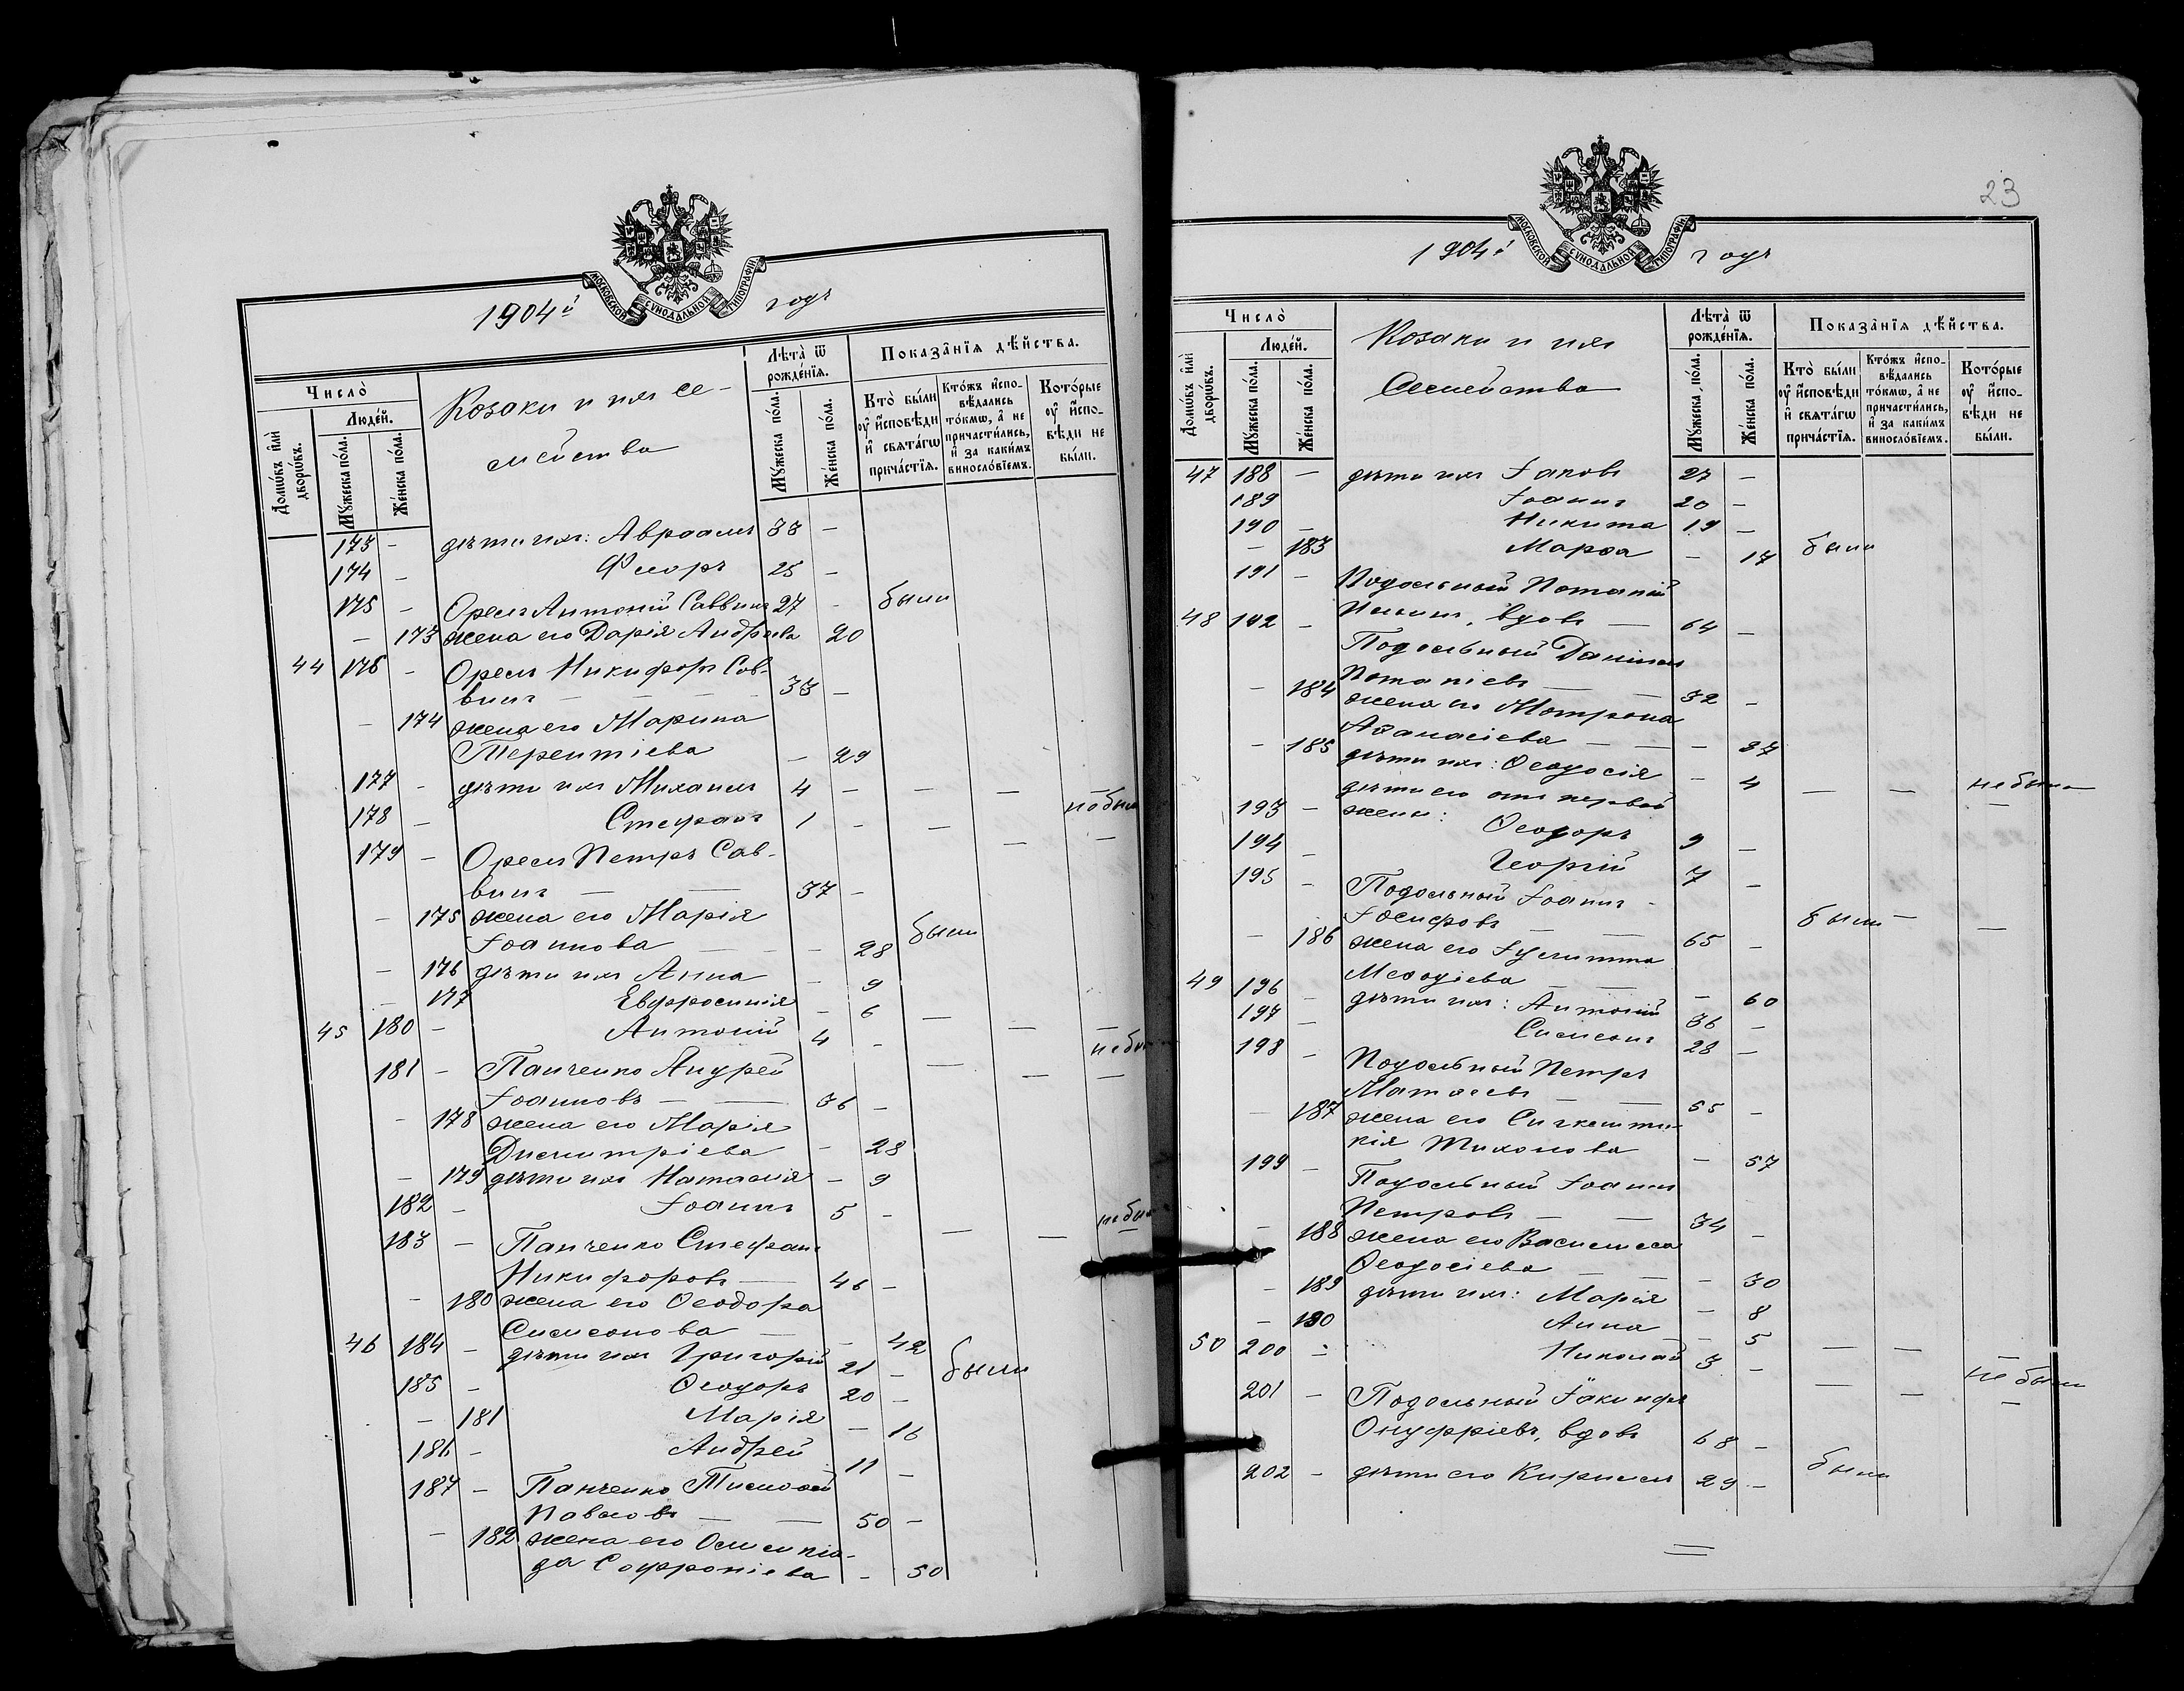 МОСКОВСКОЙ СѴНОДАЛЬНОЙ ТИПОГРАФІИ
1904й годъ
Число̀
Домѡ́въ и҆лѝ дворѡ́въ.
Люде́й.
Мꙋ́жеска по́ла.
Же́нска по́ла.
Козаки и ихъ се-
мейства
Лѣ́та ѿ рожде́нїѧ.
Мꙋ́жеска по́ла.
Же́нска по́ла.
Показа̑нїѧ дѣ́йства.
Кто̀ бы́ли ᲂу҆ и҆сповѣ́ди и҆ свѧта́гѡ прича́стїѧ.
Кто́жъ и҆сповѣ́дались то́кмѡ, а҆ не причасти́лись, и҆ за каки́мъ виносло́вїемъ.
Кото́рые ᲂу҆ и҆сповѣ́ди не бы́ли.
173 - дѣти ихъ: Авраамъ 33 -
174 - Флоръ 25 -
175 - Орелъ Антоній Саввинъ 27 - были
- 173 жена его Дарія Андреева 20
44 176 - Орелъ Никифоръ Сав-
винъ - 33 -
- 174 жена его Марина
Терентіева - 29
177 - дѣти ихъ Михаилъ 4 - - - -
178 - Стефанъ 1 - - - - не были
179 - Орелъ Петръ Сав-
винъ - - 37 -
- 175 жена его Марія
Іоаннова - - 28 были
- 176 дѣти ихъ Анна - 9
- 177 Евфросинія - 6
45 180 - Антоній 4 - - - - не были
181 - Панченко Андрей
Іоанновъ - - 36 -
- 178 жена его Марія
Димитріева - 28
- 179 дѣти ихъ Наталія - 9
182 - Іоаннъ 5 - - - не были
183 - Панченко Стефанъ
Никифоровъ - 46 -
- 180 жена его Ѳеодора
Симеонова - - 42
46 184 - дѣти ихъ Григорій 21 - были
185 - Ѳеодоръ 20 -
- 181 Марія - 16
186 - Андрей 11 -
187 - Панченко Тимоѳей
Павловъ - - 50 -
- 182 жена его Олимпіа-
да Софроніева - 50
23
МОСКОВСКОЙ СѴНОДАЛЬНОЙ ТИПОГРАФІИ
1904й годъ
Число̀
Домѡ́въ и҆лѝ дворѡ́въ.
Люде́й.
Мꙋ́жеска по́ла.
Же́нска по́ла.
Козаки и ихъ
Семейства
Лѣ́та ѿ рожде́нїѧ.
Мꙋ́жеска по́ла.
Же́нска по́ла.
Показа̑нїѧ дѣ́йства.
Кто̀ бы́ли ᲂу҆ и҆сповѣ́ди и҆ свѧта́гѡ прича́стїѧ.
Кто́жъ и҆сповѣ́дались то́кмѡ, а҆ не причасти́лись, и҆ за каки́мъ виносло́вїемъ.
Кото́рые ᲂу҆ и҆сповѣ́ди не бы́ли.
47 188 - дѣти ихъ Іаковъ 27 -
189 Іоаннъ 20 -
190 - Никита 19 -
- 183 Марѳа - 17 были
191 - Подольный Потапій
48 192 - Ильинъ, вдовъ - 64 -
Подольный Даніилъ
Потапіевъ - - 32 -
- 184 жена его Мотрона
Аѳанасіева - - - 37
- 185 дѣти ихъ: Ѳеодосія - 4 - - не были
дѣти его отъ первой
193 - жены: Ѳеодоръ 9 -
194 - Георгій 7 -
195 - Подольный Іоаннъ -
Іосифовъ - - 65 - были
- 186 жена его Іулитта
Меѳодіева - - - 60
49 196 - дѣти ихъ: Антоній 36 -
197 - Симеонъ 28 -
198 - Подольный Петръ
Матѳеевъ - - 55 -
- 187 жена его Синклити-
кія Тихонова - 57
199 - Подольный Іоаннъ
Петровъ - - 34 -
- 188 жена его Василисса
Ѳеодосіева - - - 30
- 189 дѣти ихъ: Марія - 8
- 190 Анна - 5
50 200 - Николай 3 - - - не были
201 - Подольный Іакинфъ
Онуфріевъ, вдовъ 68 -
202 - дѣти его Кириллъ 29 - были